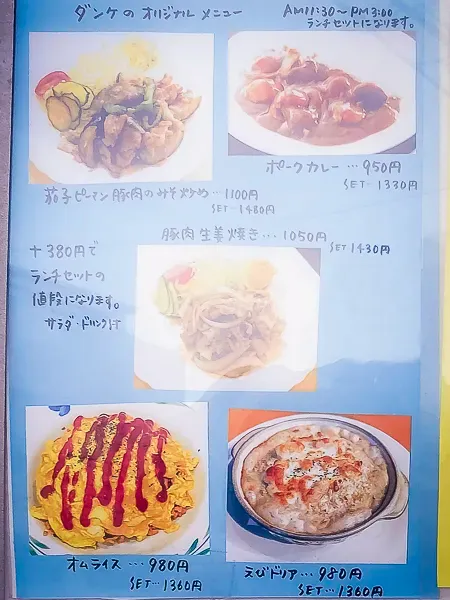 ダンケの オリジナル メニュー
AM11:30～PM3:00
ランチセットになります。
ポークカレー…950円
SET…1330円
茄子ピーマン豚肉のみそ炒め…1100円
SET…1480円
豚肉生姜焼き…1050円
SET…1430円
+380円で
ランチセットの
値段になります。
サラダ・ドリンク付
オムライス…980円
SET…1360円
えびドリア…980円
SET…1360円